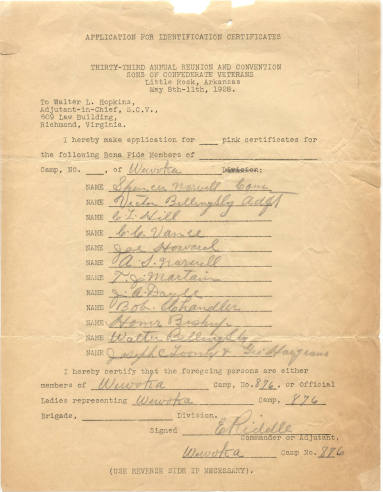 APPLICATION FOR IDENTIFICATION CERTIFICATES
THIRTY-THIRD ANNUAL REUNION AND CONVENTION
SONS OF CONFEDERATE VETERANS
Little Rock, Arkansas
May 8th-11th, 1928.
To Walter L. Hopkins,
Adjutant-in-Chief, S.C.V.,
609 Law Building,
Richmond, Virginia.
I hereby make application for ____ pink certificates for
the following Bona Fide Members of ____
Camp, No. ___, of Wewoka Division:
NAME Spencer Norvell Com
NAME Victor Bellingsby Adjt
NAME C L Hill
NAME C. C. Vance
NAME Joe Howard
NAME A. S. Norvell
NAME T. J. Martain
NAME J. A. Doyle
NAME Bob Chandler
NAME Homer Bishop
NAME Walter Bellingsby
NAME Joseph C Looney & Geo
I hereby certify that the foregoing persons are either
members of Wewoka Camp, No. 876, or Official
Ladies representing Wewoka Camp, 876
Brigade, ____ Division.
Signed E Riddle
Commander or Adjutant,
Wewoka Camp No. 876
(USE REVERSE SIDE IF NECESSARY).